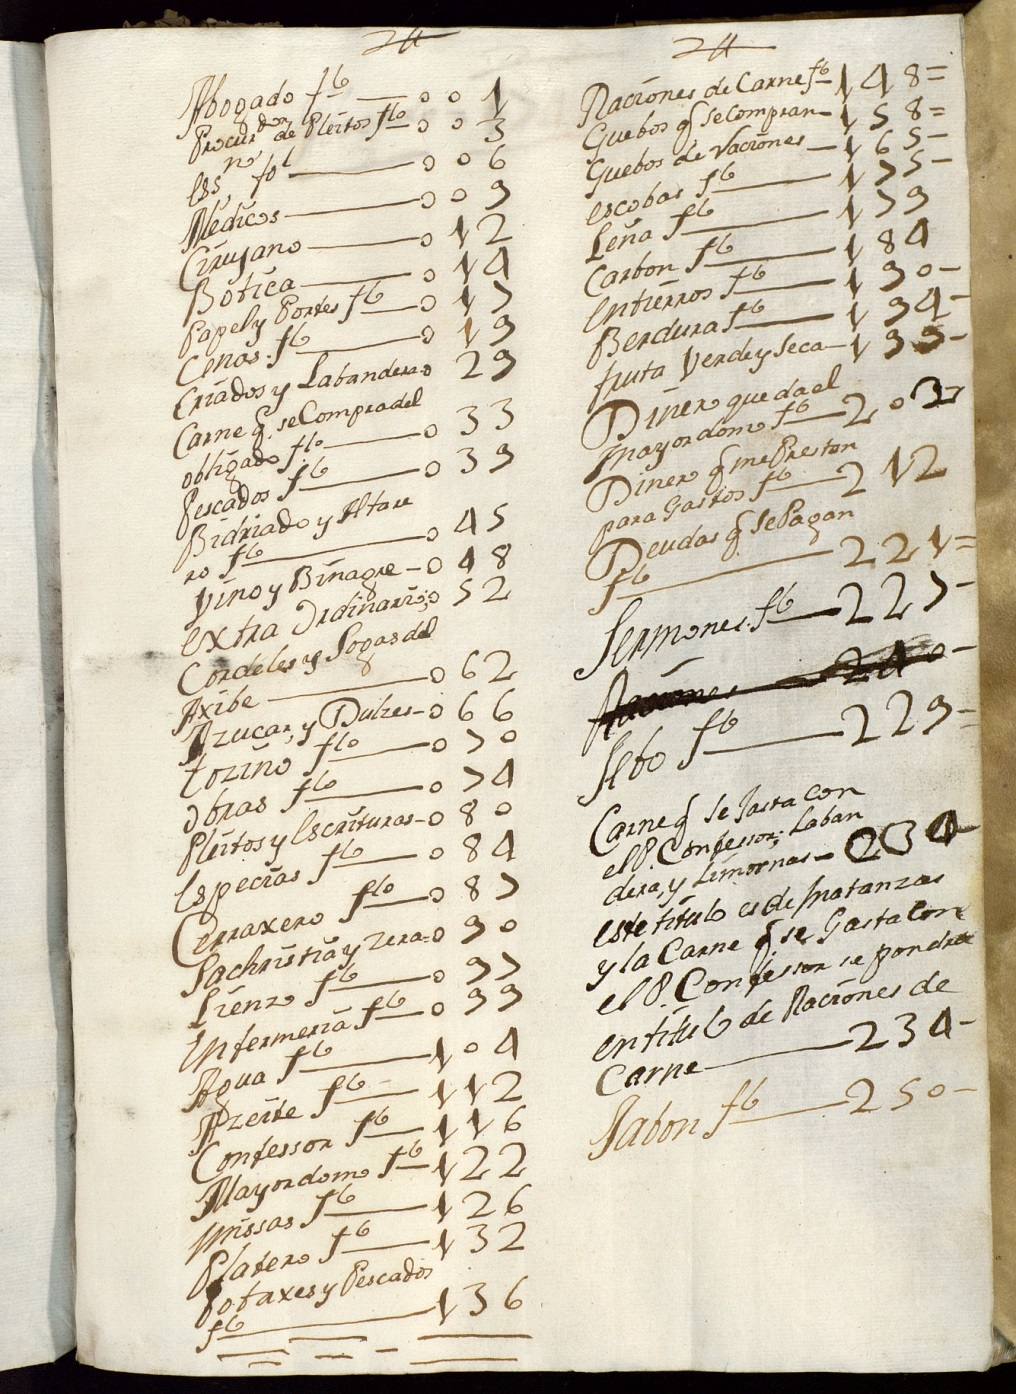 Abogado fº — 001
Procurdor de Pleitos fº — 003
essno fol — 006
Médicos — 009
Cirujano — 012
Botica — 014
Papel y Portes fº — 017
Cenas fº — 019
Criados y Labandera 029
Carne q. se Compra del
obligado fº — 033
Pescados fº — 039
Bidriado y Altare
ro fº — 045
Vino y Binagre — 048
extra Ordinario; 052
Cordeles y Sogas del
Axibe — 062
Azucar, y Dulzes — 066
tozino fº — 070
Obras fº — 074
Pleitos y Escrituras — 080
Especias fº — 084
Cerraxero fº — 087
Sachristia y zera — 090
Lienzo fº — 097
Ynfermeria fº — 099
Agua fº — 104
Azeite fº — 112
Confessor fº — 116
Mayordomo fº — 122
Missas fº — 126
Platero fº — 132
Potaxes y Pescados
fº — 136
Raciones de Carne fº — 148=
Guebos q se Compran — 158=
Guebos de raciones — 165-
escobas fº — 175-
Leña fº — 179
Carbon fº — 184
Entierros fº — 190-
Berdura fº — 194-
fruta Verde y Seca — 199-
Dinero que da el
mayordomo fº — 203
Dinero q me Prestan
para Gastos fº — 212
Deudas q Se Pagan
fº — 221=
Sermones fº — 227-
Raciones — 240-
Sebo fº — 229=
Carne q se Jasta con
el P. Confessor, Laban
dera, y Limosnas — 234
este titulo es de Matanzas
y la Carne q se Gasta con
el P. Confessor se pondra
en titulo de Raciones de
Carne — 234-
Jabon fº — 250-